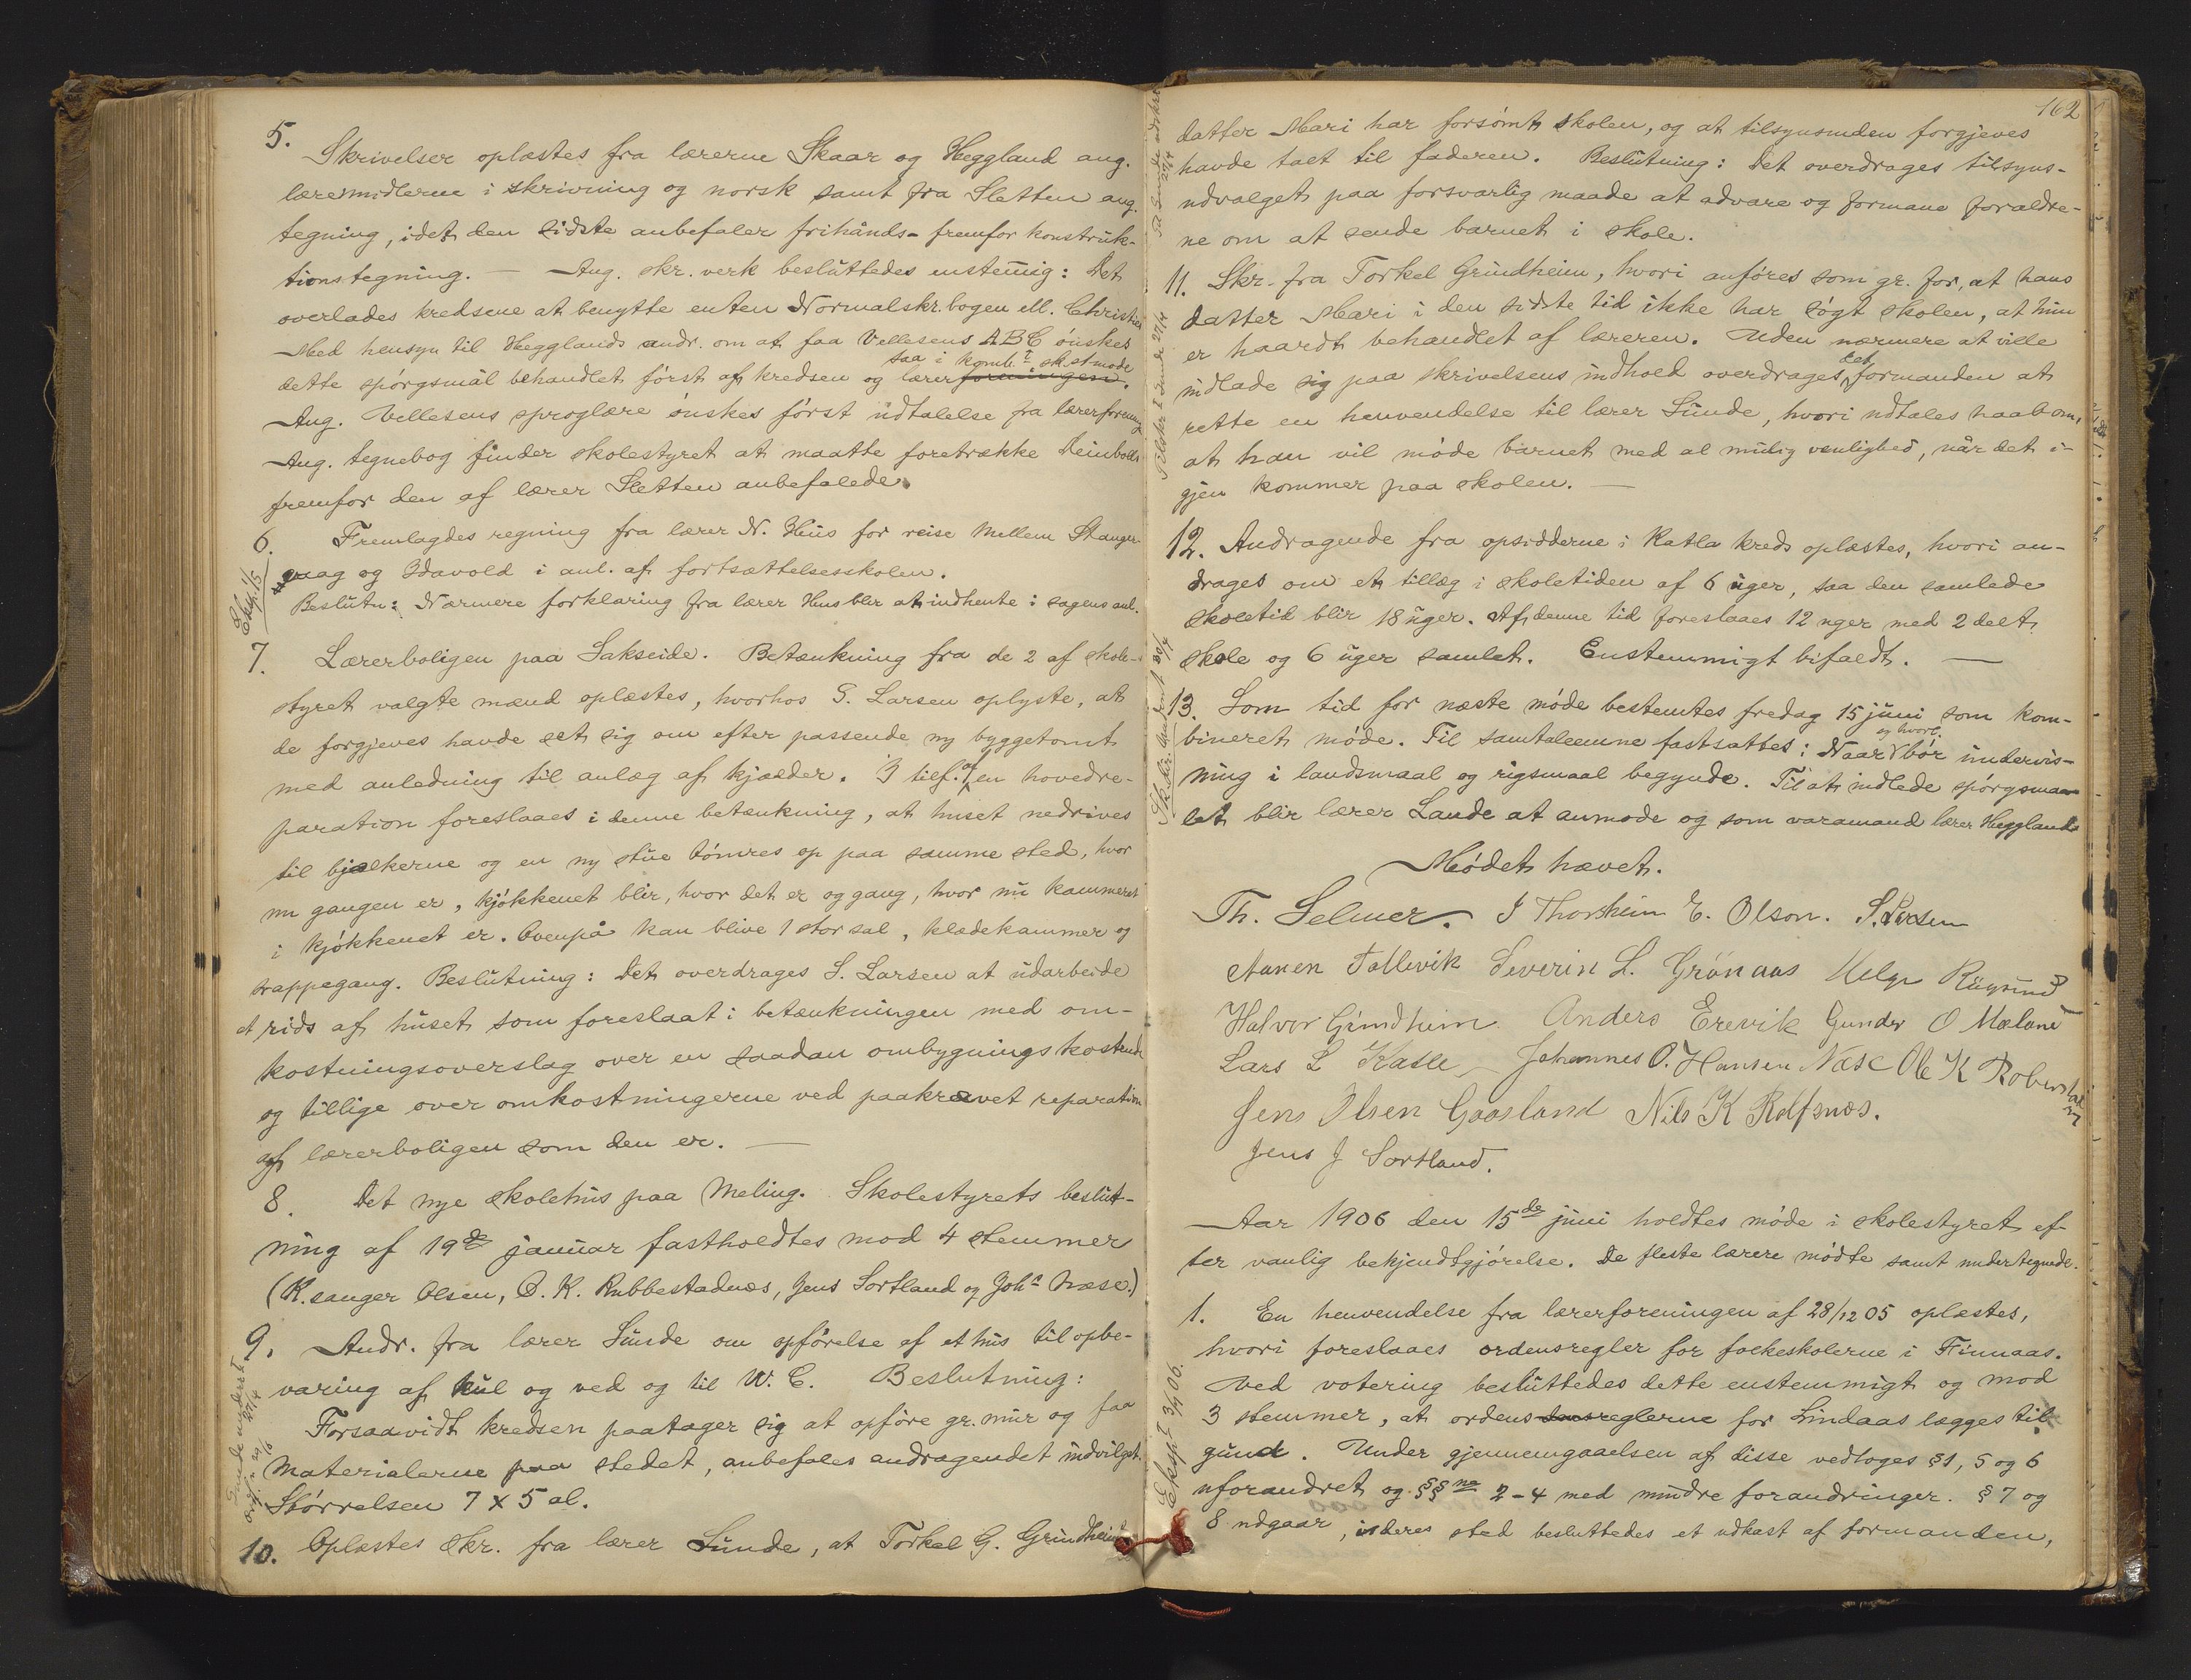 5.
Skrivelser oplæstes fra lærerne Skaar og Heggland ang.
læremidlerne i skrivning og norsk samt fra Sletten ang.
tegning, idet den sidste anbefaler frihånds- fremfor konstruk-
tionstegning. — Ang. skr.verk besluttedes enstemig: Det
overlades kredsene at benytte enten Normalskr.bogen ell. Christies
Med hensyn til Hegglands andr. om at faa Vellesens ABC ønskes
saa i komb.t sk.st.møde
dette spørgsmål behandlet først af kredsen og lærerforeningen.
Ang. Vellesens sproglære ønskes først udtalelse fra lærerforening
Ang. tegnebog finder skolestyret at maatte foretrække Deinbolls
fremfor den af lærer Sletten anbefalede.
6. Fremlagdes regning fra lærer N. Hus for reise mellem Stanger-
vaag og Idavold i anl. af fortsættelsesskolen.
Beslutn: Nærmere forklaring fra lærer Hus blir at indhente i sagens anl.
Eksp. 1/5
7. Lærerboligen paa Sakseide. Betænkning fra de 2 af skole-
styret valgte mænd oplæstes, hvorhos S. Larsen oplyste, at
de forgjeves havde set sig om efter passende ny byggetomt
med anledning til anlæg af kjælder. I tilf. af en hovedre-
paration foreslaaes i denne betænkning, at huset nedrives
til bjælkerne og en ny stue tømres op paa samme sted, hvor
nu gangen er, kjøkkenet blir, hvor det er og gang, hvor nu kammeret
i kjøkkenet er. Ovenpå kan blive 1 stor sal, klædekammer og
trappegang. Beslutning: Det overdrages S. Larsen at udarbeide
et rids af huset som foreslaat i betænkningen med om-
kostningsoverslag over en saadan ombygnings kostende
og tillige over omkostningerne ved paakrævet reparation
af lærerboligen som den er. —
8. Det nye skolehus paa Meling. Skolestyrets beslut-
ning af 19de januar fastholdtes mod 4 stemmer
(K.sanger Olsen, O. K. Rubbestadnæs, Jens Sortland og Joh.s Næse.)
9. Andr. fra lærer Sunde om opførelse af et hus til opbe-
varing af kul og ved og til W. C. Beslutning:
Forsaavidt kredsen paatager sig at opføre gr.mur og faa
materialerne paa stedet, anbefales andragendet indvilget.
Størrelsen 7 x 5 al.
Sunde underret 27/4
10. Oplæstes skr. fra lærer Sunde, at Torkel G. Grindheims
162
datter Mari har forsømt skolen, og at tilsynsmden forgjeves
havde talt til faderen. Beslutning: Det overdrages tilsyns-
udvalget paa forsvarlig maade at advare og formane forældre-
ne om at sende barnet i skole.
11. Skr. fra Torkel Grindheim, hvori anføres som gr. for, at hans
datter Mari i den sidste tid ikke har søgt skolen, at hun
er haardt behandlet af læreren. Uden nærmere at ville
det
indlade sig paa skrivelsens indhold overdrages formanden at
rette en henvendelse til lærer Sunde, hvori udtales haab om,
at han vil møde barnet med al mulig venlighed, når det i-
gjen kommer paa skolen. —
12. Andragende fra opsidderne i Katla kreds oplæstes, hvori an-
drages om et tillæg i skoletiden af 6 uger, saa den samlede
skoletid blir 18 uger. Af denne tid foreslaaes 12 uger med 2 delt
skole og 6 uger samlet. Enstemmigt bifaldt. —
13. Som tid for næste møde bestemtes fredag 15 juni som kom-
og hvorl.
bineret møde. Til samtaleemne fastsattes: Naar bør undervis-
ning i landsmaal og rigsmaal begynde. Til at indlede spørgsmaa-
let blir lærer Lande at anmode og som varamand lærer Heggland
Mødet hævet.
Th. Selmer. J Thorsheim E. Olson. S. Larsen
Aanen Tollevik Severin L. Grønaas Helge Røgsund
Halvor Grindheim Anders Erevik Gunder O Mæland
Lars L Katle Johannes O. Hansen Næse Ole K Robberstadnes
Jens Olsen Gaasland Nils K Rolfsnæs.
Jens J Sortland.
Aar 1906 den 15de juni holdtes møde i skolestyret ef-
ter vanlig bekjendtgjørelse. De fleste lærere mødte samt undertegnede.
1. En henvendelse fra lærerforeningen af 28/12 05 oplæstes,
hvori foreslaaes ordensregler for folkeskolerne i Finnaas.
Ved votering besluttedes dette enstemmigt og mod
3 stemmer, at ordensreglerne for Lindaas lægges til
grund. Under gjennemgaaelsen af disse vedtoges §1, 5 og 6
uforandret og §§ne 2-4 med mindre forandringer. § 7 og
8 udgaar, i deres sted besluttedes et udkast af formanden,
Ekspt 3/7 06.